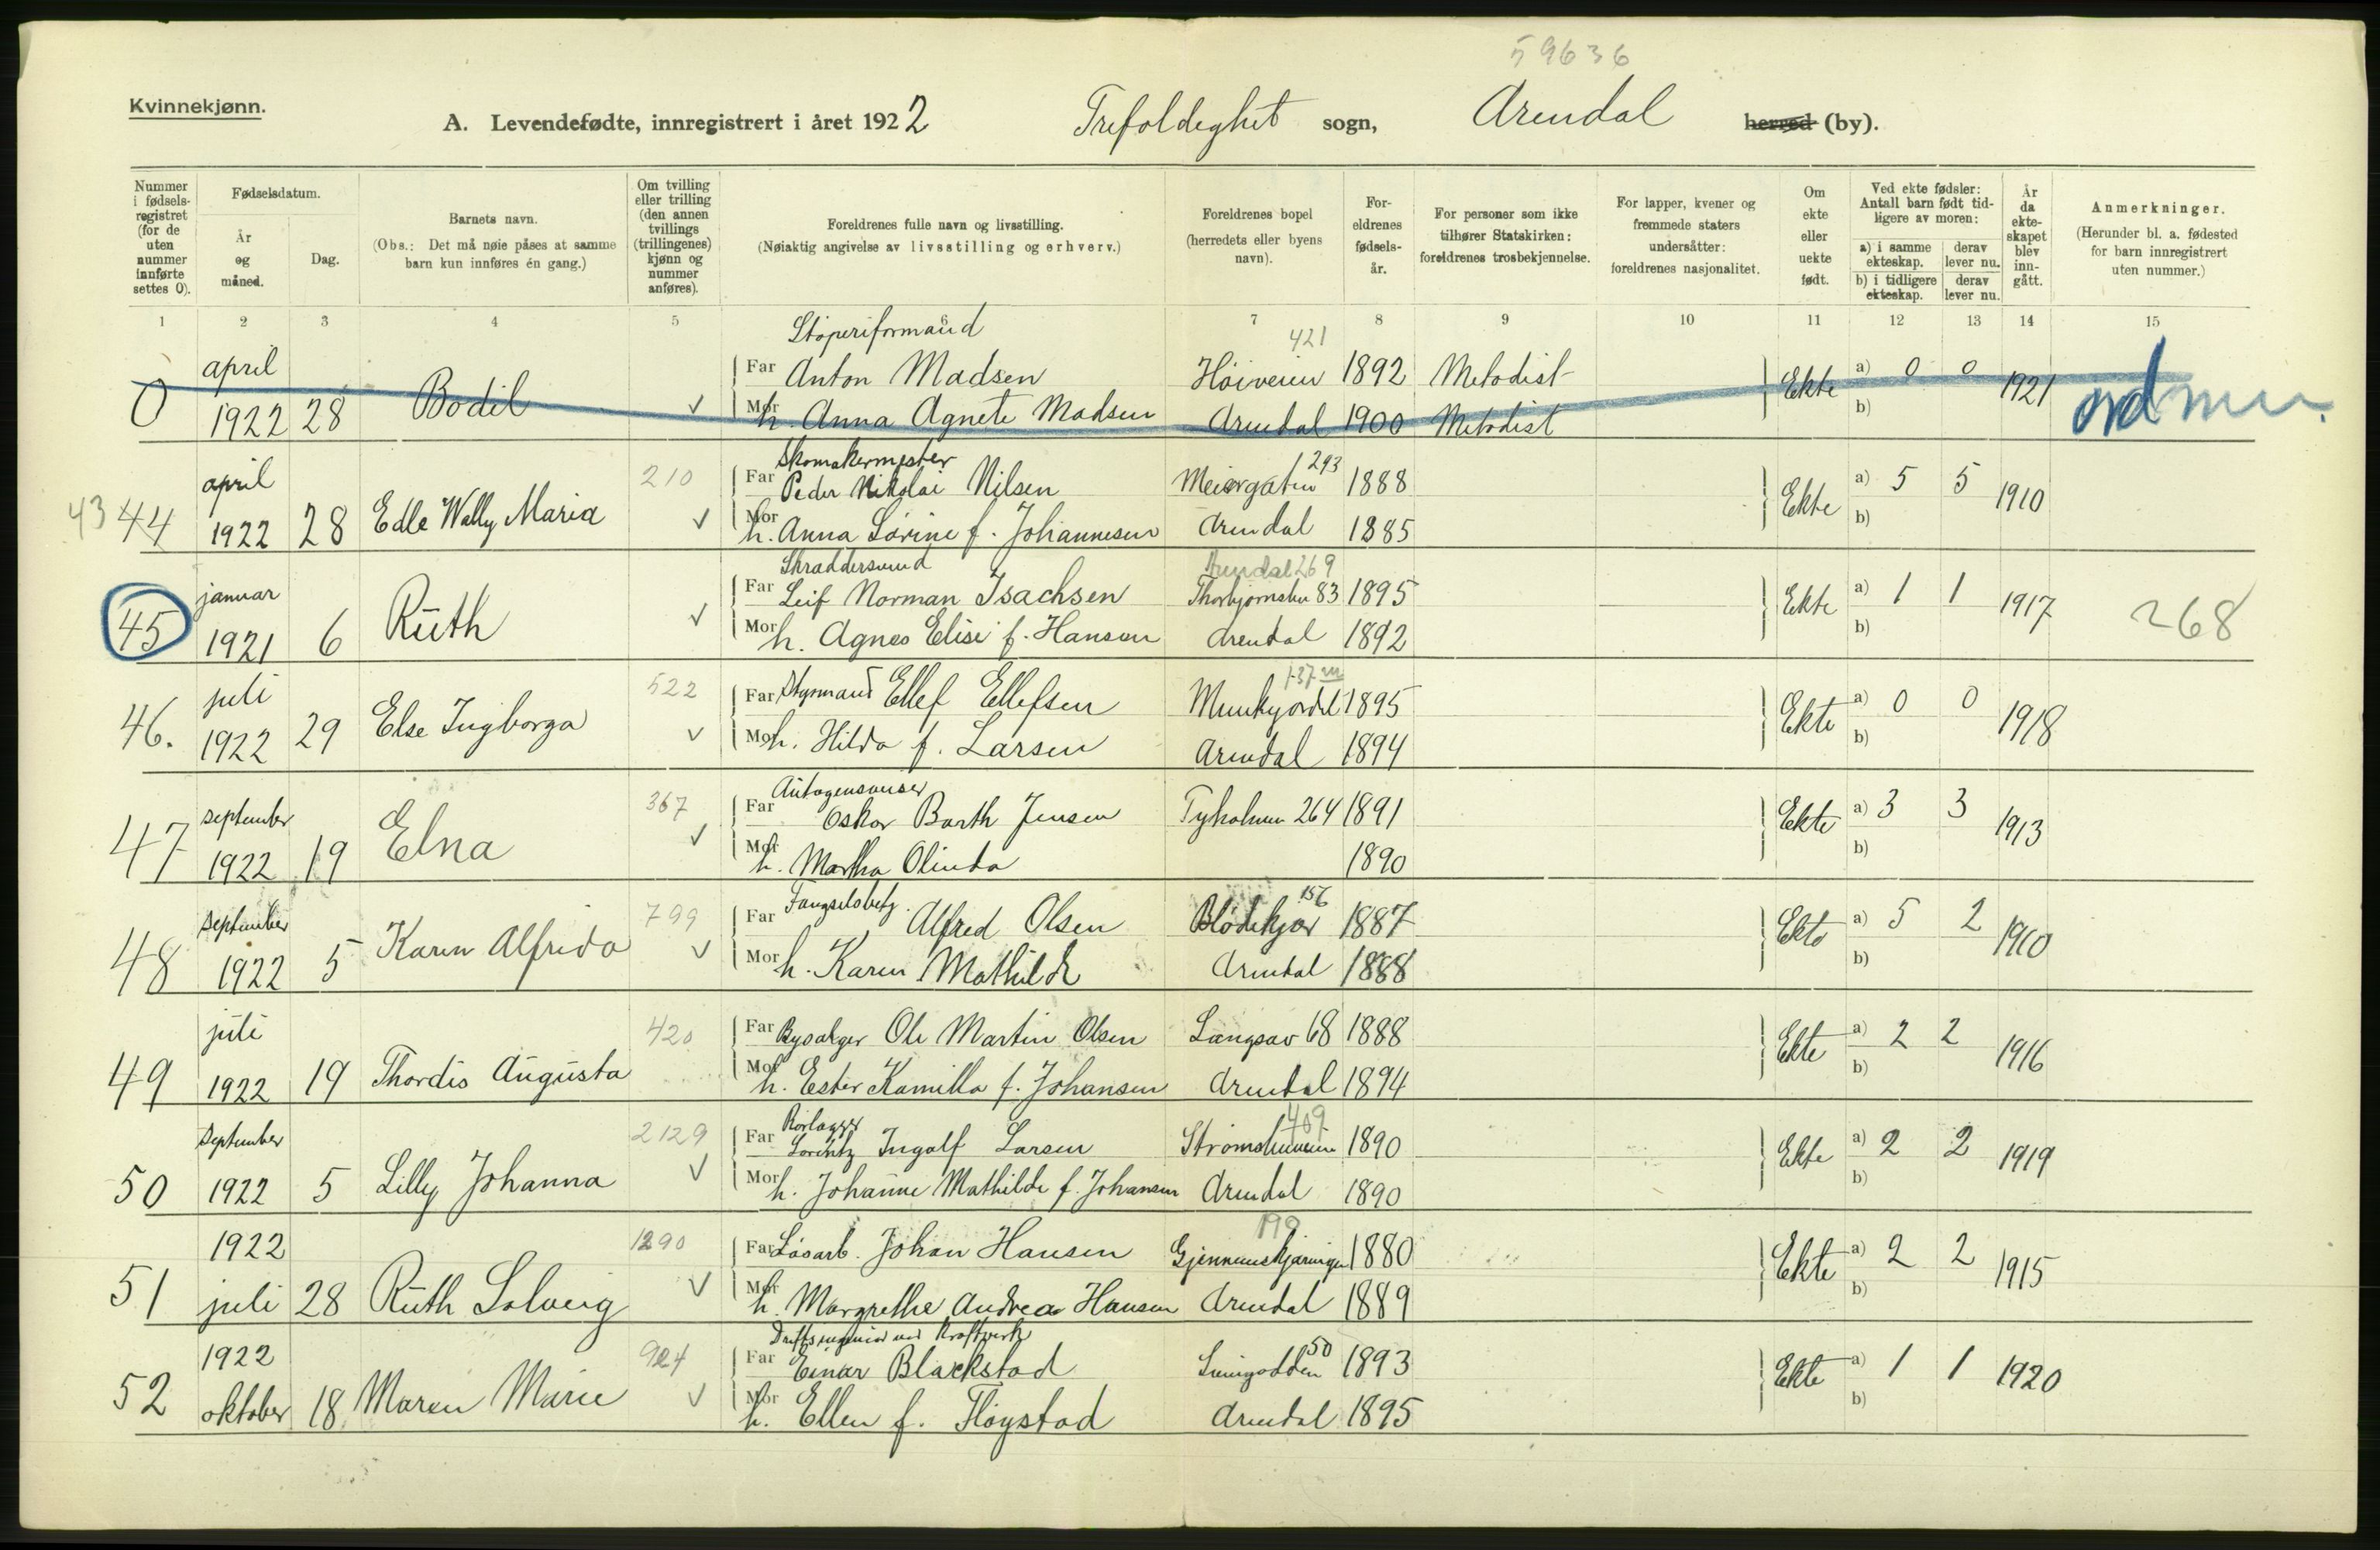 59636
Kvinnekjønn.
A. Levendefødte, innregistrert i året 1922 Trefoldighet sogn, Arendal herred (by).
Nummer i fødselsregistret (for de uten nummer innførte settes 0).
Fødselsdatum.
År og måned.
Dag.
Barnets navn.
(Obs.: Det må nøie påses at samme barn kun innføres én gang.)
Om tvilling eller trilling (den annen tvillings (trillingenes) kjønn og nummer anføres).
Foreldrenes fulle navn og livsstilling.
(Nøiaktig angivelse av livsstilling og erhverv.)
Foreldrenes bopel (herredets eller byens navn).
Foreldrenes fødselsår.
For personer som ikke tilhører Statskirken: foreldrenes trosbekjennelse.
For lapper, kvener og fremmede staters undersåtter: foreldrenes nasjonalitet.
Om ekte eller uekte født.
Ved ekte fødsler: Antall barn født tidligere av moren:
a) i samme ekteskap. derav lever nu.
b) i tidligere ekteskap. derav lever nu.
År da ekteskapet blev inngått.
Anmerkninger.
(Herunder bl. a. fødested for barn innregistrert uten nummer.)
1 2 3 4 5 6 7 8 9 10 11 12 13 14 15
Støperiformand 421
april Far Anton Madsen Høiveien 1892 Metodist Ekte a) 0 0 1921
0 1922 28 Bodil Mor h. Anna Agnete Madsen Arendal 1900 Metodist b)
Skomakermester 293
april 210 Far Peder Nikolai Nilsen Meiergaten 1888 Ekte a) 5 5 1910
43 44 1922 28 Edle Wally Maria Mor h. Anna Lovine f. Johannesen Arendal 1885 b)
Skraddersvend Arendal 269
januar Far Leif Norman Isachsen 83 1895 Ekte a) 1 1 1917 268
45 1921 6 Ruth Mor h. Agnes Elise f. Hansen Arendal 1892 b)
juli 522 Far Styrmand Ellef Ellefsen 1895 Ekte a) 0 0 1918
46. 1922 29 Else Ingborga Mor h. Hilda f. Larsen Arendal 1894 b)
september 367 Far Oskar Barth Jensen Tyholmen 264 1891 Ekte a) 3 3 1913
47 1922 19 Elna Mor h. Martha Olinda 1890 b)
156
september 799 Far Alfred Olsen Blødekjær 1887 Ekte a) 5 2 1910
48 1922 5 Karen Alfrida Mor h. Karen Mathilde Arendal 1888 b)
juli 420 Far Bysælger Ole Martin Olsen Langsæv 68 1888 Ekte a) 2 2 1916
49 1922 19 Thordis Augusta Mor h. Ester Kamilla f. Johansen Arendal 1894 b)
Rørlægger 409
september 2129 Far Lorentz Ingolf Larsen 1890 Ekte a) 2 2 1919
50 1922 5 Lilly Johanna Mor h. Johanne Mathilde f. Johansen Arendal 1890 b)
1922 1290 Far Løsarb. Johan Hansen Gjennemskjæringen 1880 Ekte a) 2 2 1915
51 juli 28 Ruth Solveig Mor h. Margrethe Andrea Hansen Arendal 1889 b)
Driftsingeniør ved Kraftverk 50
1922 924 Far Einar Blackstad 1893 Ekte a) 1 1 1920
52 oktober 18 Maren Marie Mor h. Ellen f. Fløystad Arendal 1895 b)